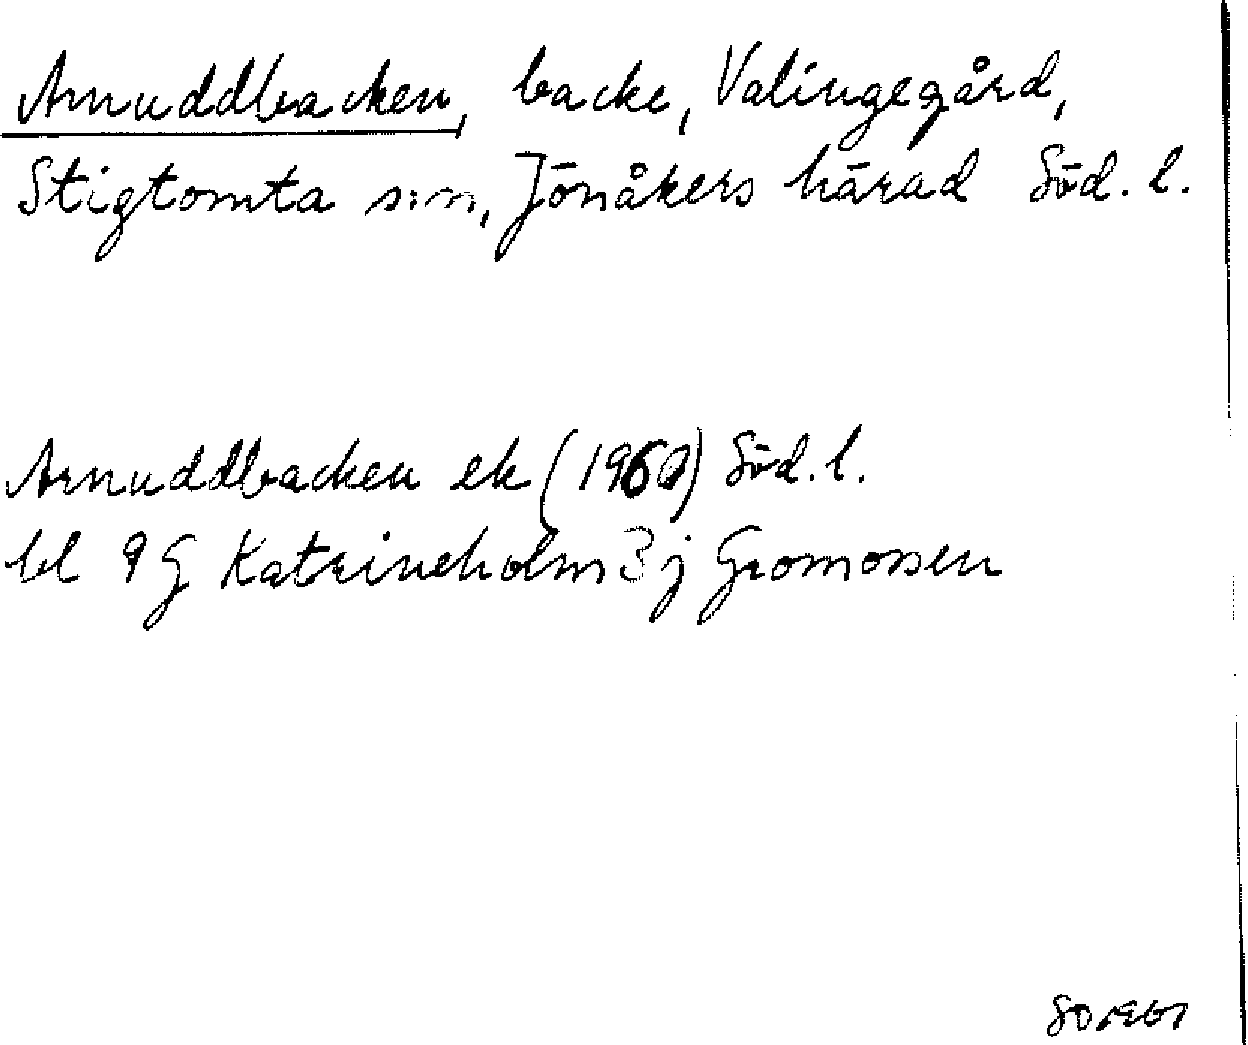 Arnuddbacken, backe, Valingegård,
Stigtomta s:n, Jönåkers härad Söd. l.
Arnuddbacken ek (1960) Söd. l.
bl 9G Katrineholm 3j Gromossen